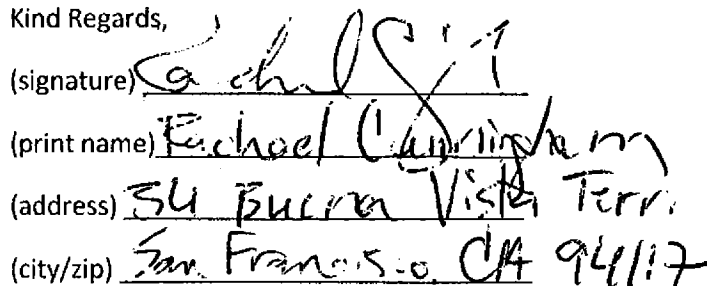 Kind Regards,
(signature)
(print name) Rachael Cunningham
(address) 34 Buena Vista Terr.
(city/zip) San Francisco, CA 94117